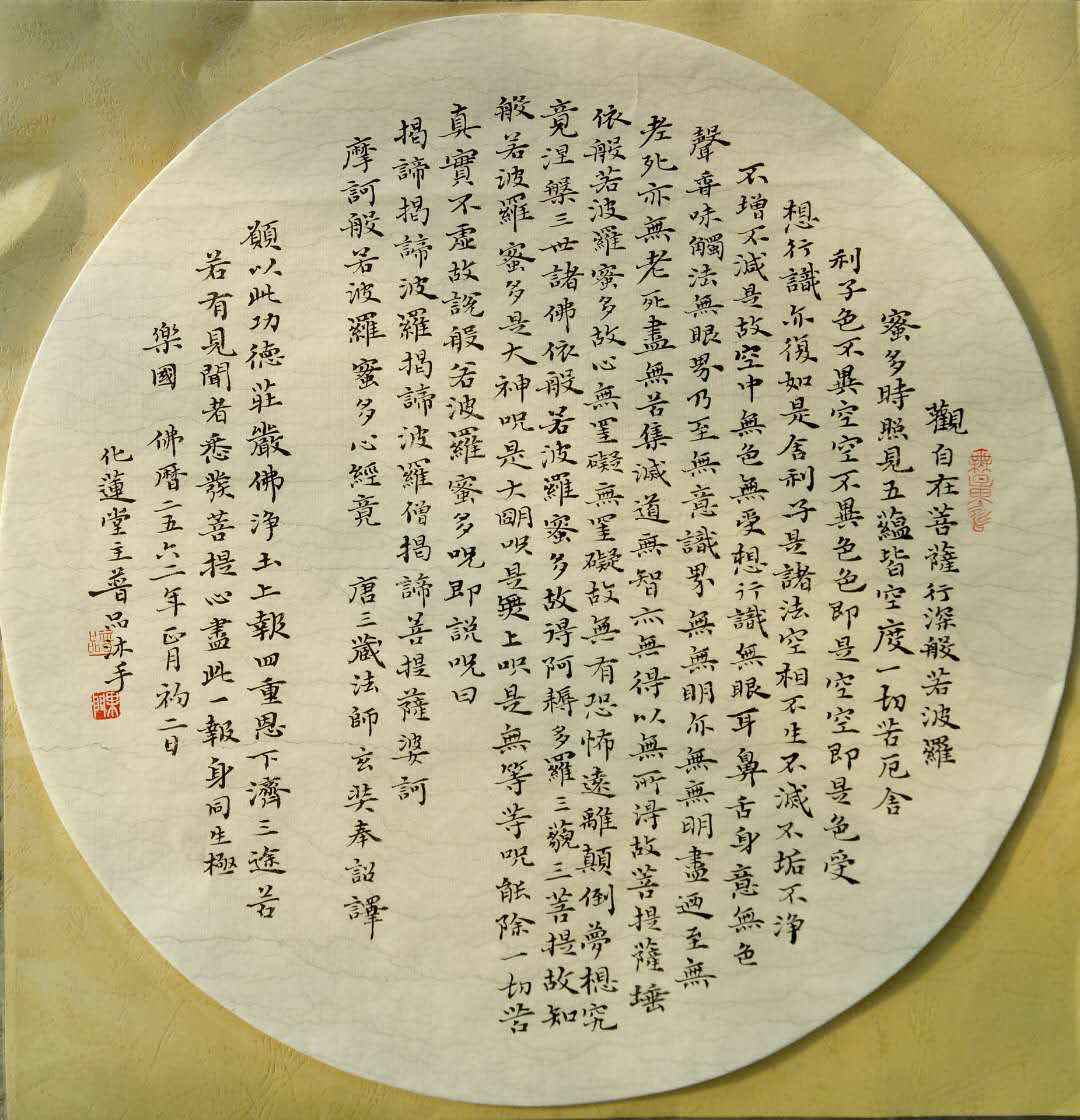 觀自在菩薩行深般若波羅
蜜多時照見五蘊皆空度一切苦厄舍
利子色不異空空不異色色即是空空即是色受
想行識亦復如是舍利子是諸法空相不生不滅不垢不淨
不增不減是故空中無色無受想行識無眼耳鼻舌身意無色
聲香味觸法無眼界乃至無意識界無無明亦無無明盡迺至無
老死亦無老死盡無苦集滅道無智亦無得以無所得故菩提薩埵
依般若波羅蜜多故心無罣礙無罣礙故無有恐怖遠離顛倒夢想究
竟涅槃三世諸佛依般若波羅蜜多故得阿耨多羅三藐三菩提故知
般若波羅蜜多是大神呪是大明呪是無上呪是無等等呪能除一切苦
真實不虛故說般若波羅蜜多呪即說呪曰
揭諦揭諦波羅揭諦波羅僧揭諦菩提薩婆訶
摩訶般若波羅蜜多心經竟 唐三藏法師玄奘奉詔譯
願以此功德莊嚴佛淨土上報四重恩下濟三途苦
若有見聞者悉發菩提心盡此一報身同生極
樂國 佛曆二五六二年正月初二日
化蓮堂主普品沐手